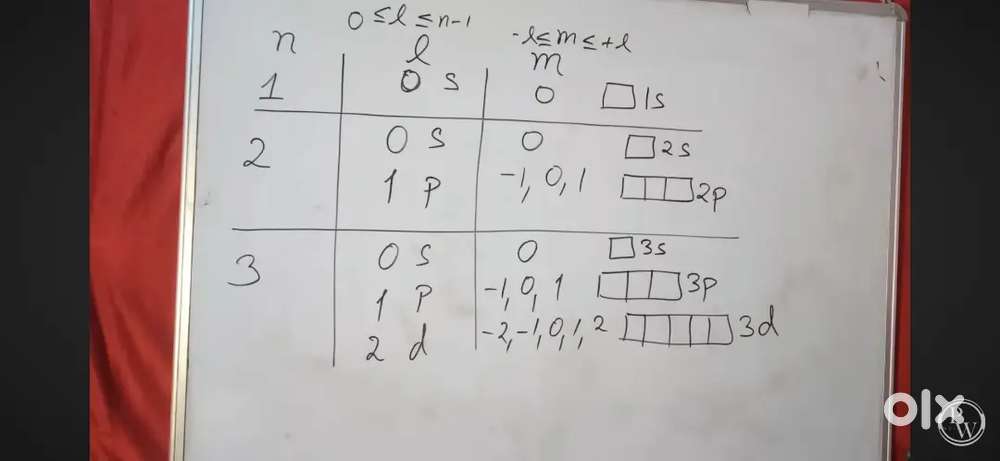 0 ≤ l ≤ n-1
n l -l ≤ m ≤ +l
m
1 0 s 0 1s
2 0 s 0 2s
1 p -1, 0, 1 2p
3 0 s 0 3s
1 p -1, 0, 1 3p
2 d -2, -1, 0, 1, 2 3d
olx
PW